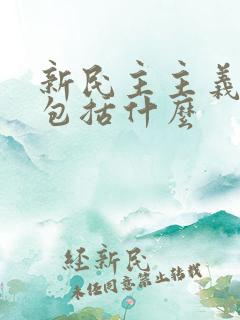 新民主主義
包括什麼
経新民
未经同意禁止转载